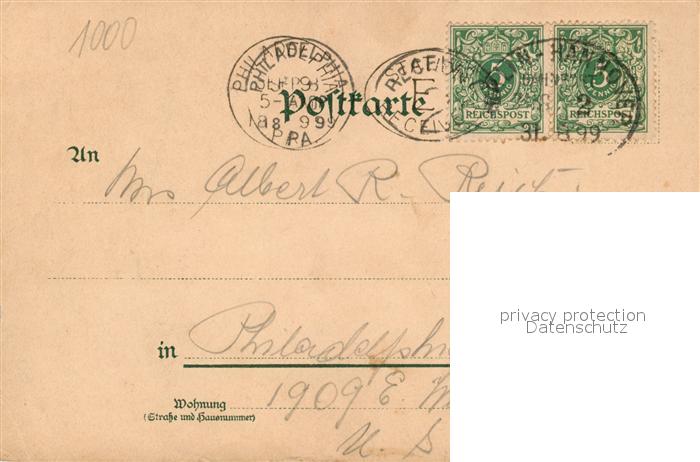 1000
PHILADELPHIA
SEP 9
5-
1899
PA
STATION
E
RECEIVED
HANNOVER
31. 99
5 5
PFENNIG PFENNIG
REICHSPOST REICHSPOST
Postkarte
An
Mrs Albert R.
in Philadelphia
Wohnung
(Straße und Hausnummer)
1909 E.
U. S
privacy protection
Datenschutz